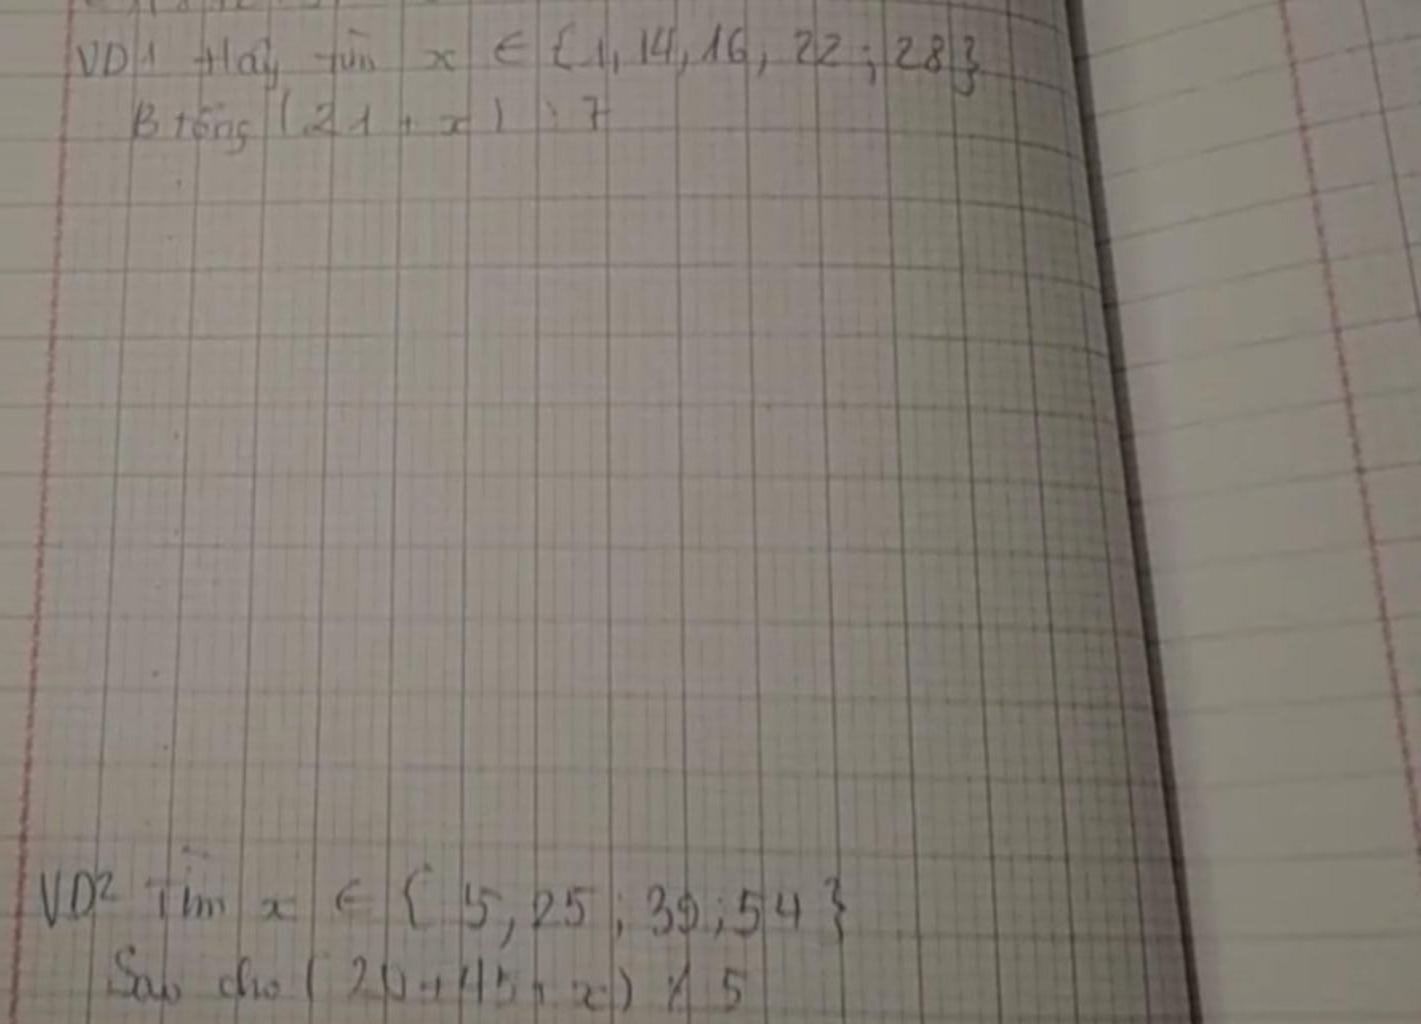 VD1 Hãy tìm x ∈ {1, 14, 16, 22; 28}
B tổng (21 + x) ⋮ 7
VD2 Tìm x ∈ { 5, 25; 39; 54 }
Sao cho ( 20 + 45 + x) ⋮̸ 5